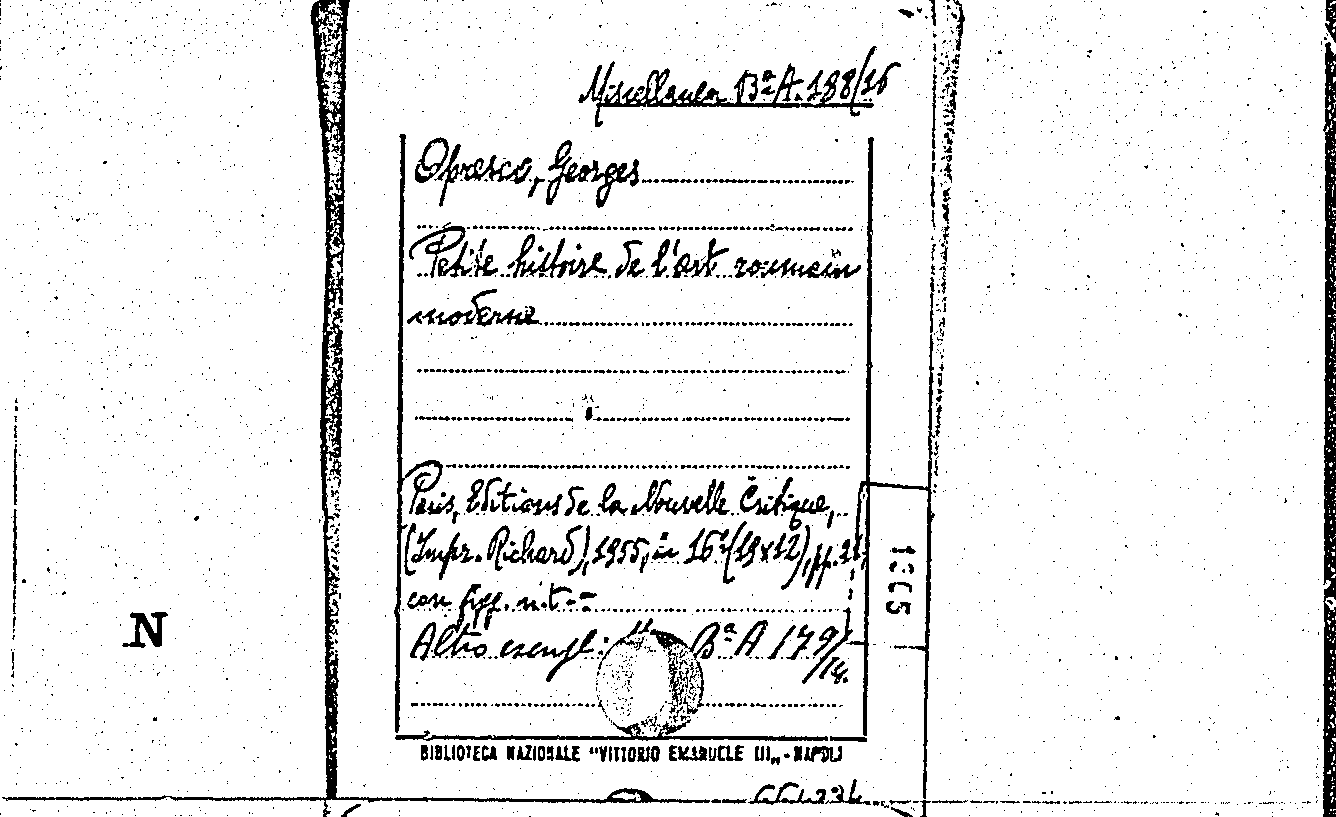 Miscellanea Bª A. 188/16
Opresco, Georges
Petite histoire de l'art roumain
moderne
Paris, Editions de la Nouvelle Critique,
(Impr. Richard), 1955, in 16º (19x12), pp.
con figg. n.t.-
1305
N
Altro esempl: Bª A 179/
/14.
BIBLIOTECA NAZIONALE "VITTORIO EMANUELE III„ - NAPOLI